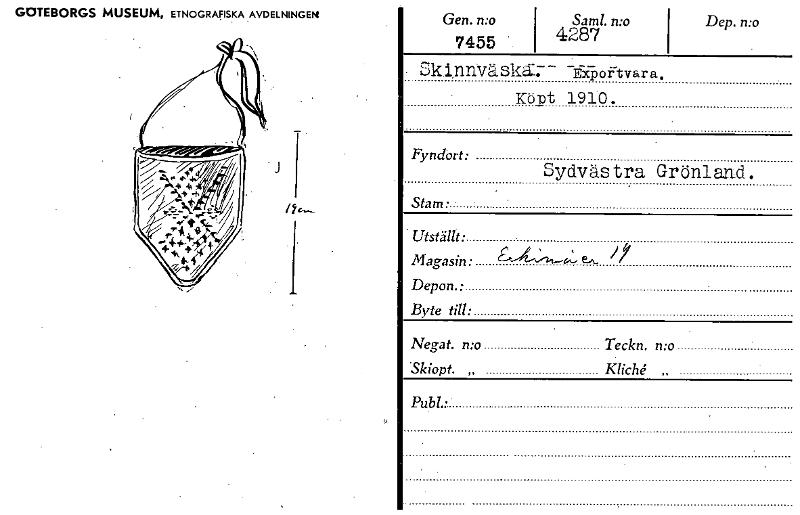 GÖTEBORGS MUSEUM, ETNOGRAFISKA AVDELNINGEN
J
19cm
Gen. n:o Saml. n:o Dep. n:o
7455 4287
Skinnväska. Exportvara.
Köpt 1910.
Fyndort:
Sydvästra Grönland.
Stam:
Utställt:
Magasin: Eskimåer 19
Depon.:
Byte till:
Negat. n:o Teckn. n:o
Skiopt. „ Kliché „
Publ.: